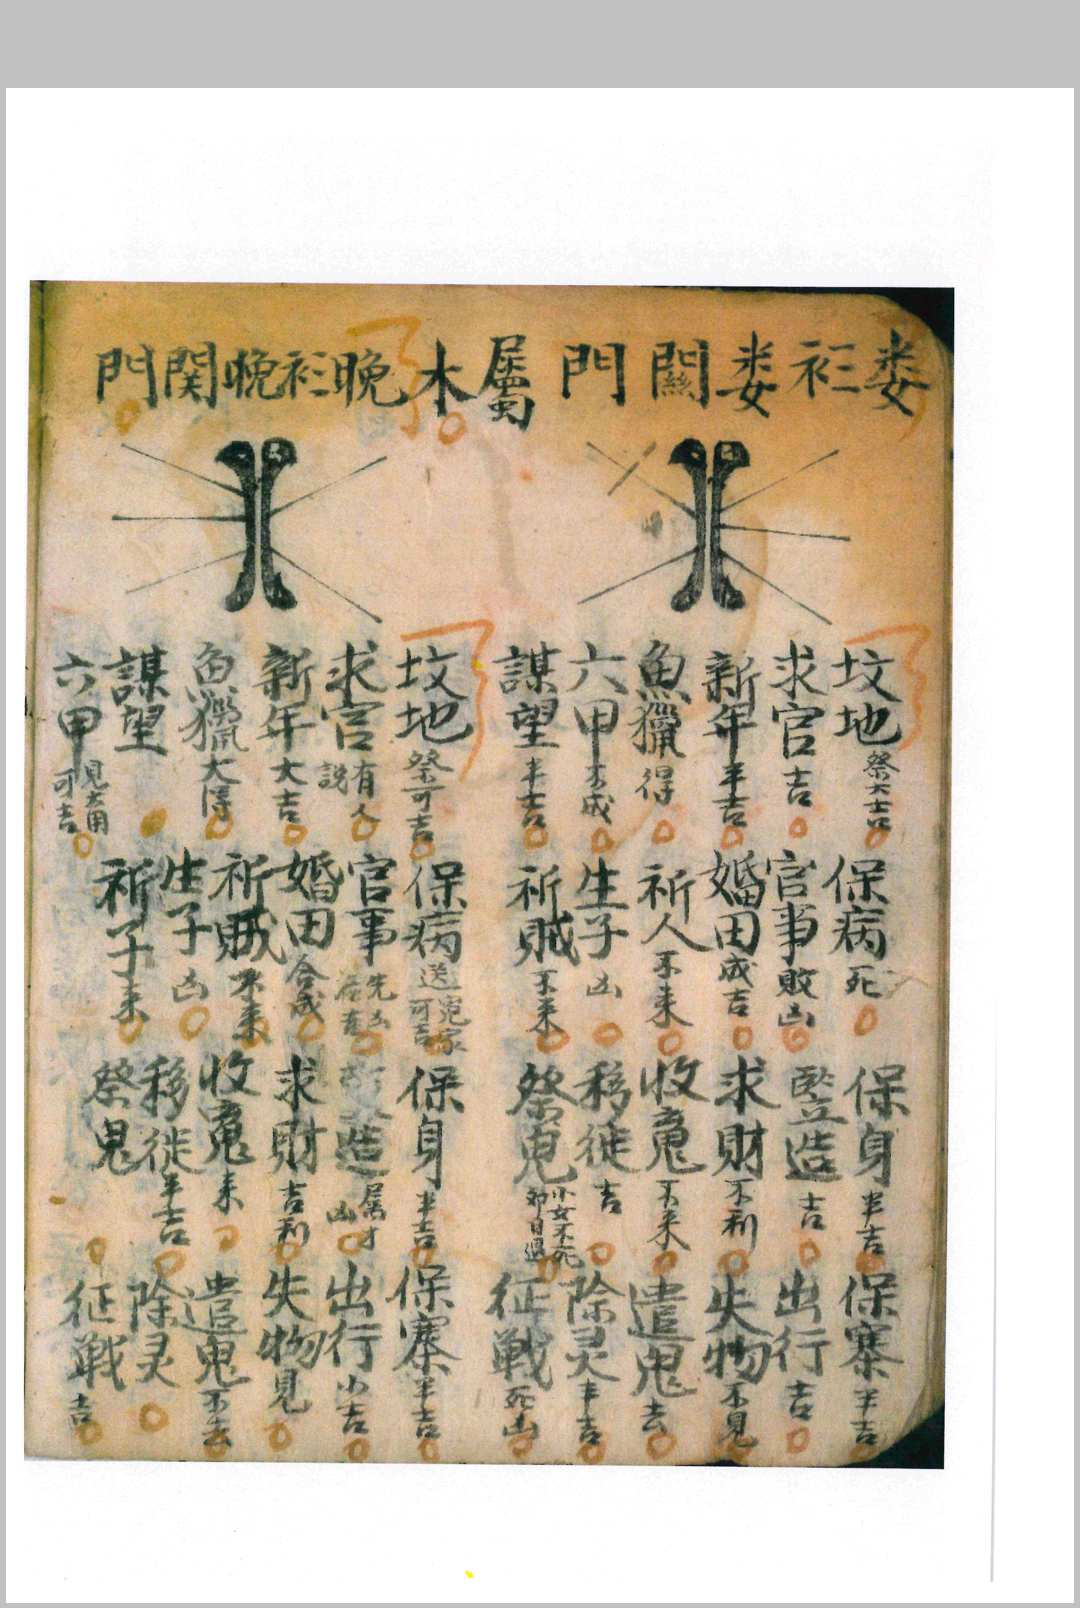 娄衫娄關門
屬木
晚衫晚関門
坟地 祭大吉
求官 吉
新年 半吉
魚獵 得
六甲 不成
謀望 半吉
保病 死
官事 敗凶
婚田 成吉
祈人 不来
生子 凶
祈賊 不来
保身 半吉
竪造 吉
求財 不利
收寃 不来
移徙 吉
祭鬼 小女不死
保寨 半吉
出行 吉
失物 不見
遣鬼 去
除灵 半吉
征戦 死凶
坟地 祭可吉
求官 有人説
新年 大吉
魚獵 大得
謀望
六甲 可吉
保病 送寃家可吉
官事 先凶
婚田 合成
祈賊 不来
生子 凶
祈子 来
保身 半吉
造 凶
求財 吉利
收寃 来
移徙 半吉
祭鬼
保寨 半吉
出行 小吉
失物 見
遣鬼 不去
除灵
征戦 吉